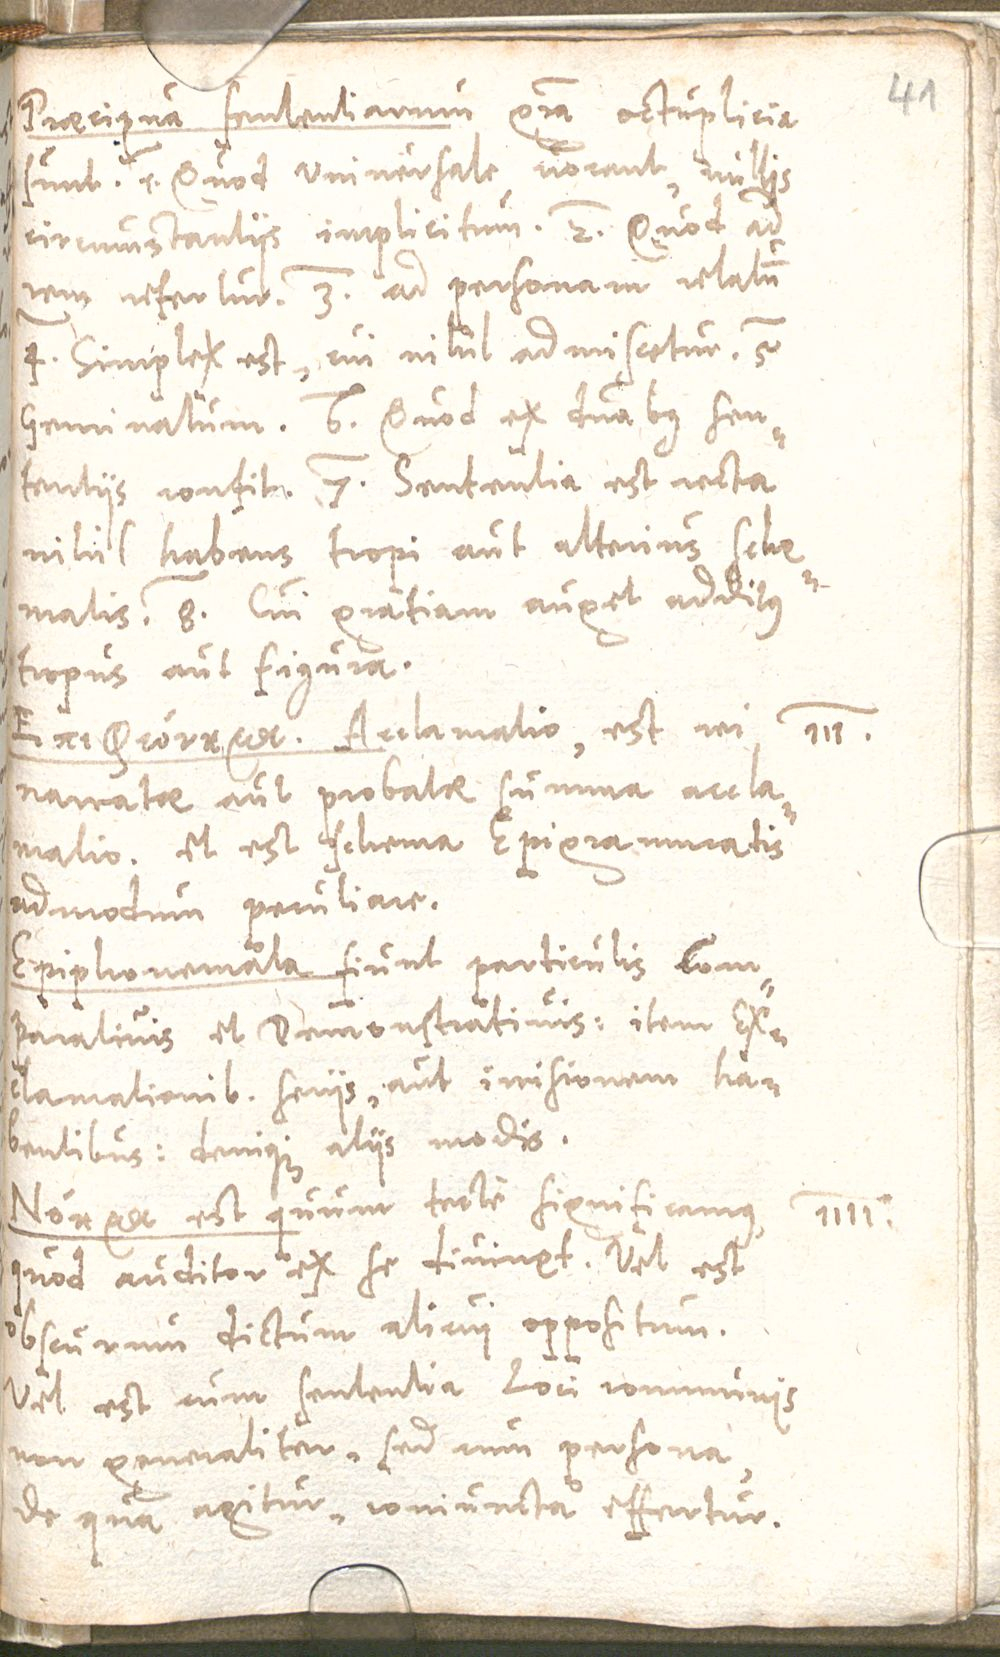 41
Præcipua sententiarum gña octuplicia
sunt. 1. Quod Vniuersale uocant, nullis
circumstantijs implicitum. 2. Quod ad
rem refertur. 3. ad personam relatū
4. Simplex est, cui nihil admiscetur. 5
Geminatum. 6. Quod ex duabꝰ sen„
tentijs confit. 7. Sententia est recta
nihil habens tropi aut alterius sche„
matis. 8. Cui gratiam auget additꝰ
tropus aut figura.
Acclamatio, est rei III.
narratæ aut probatæ summa accla„
matio. et est schema Epigrammatis
admodum peculiare.
Epiphonemata fiunt particulis Com„
paratiuis et Demonstratiuis: item Ex„
clamationib. serijs, aut irrisionem ha„
bentibus: deniqꝫ alijs modis.
Νόημα est quum tecte significamꝰ IIII.
quod auditor ex se diuinet. Vel est
obscurum dictum alicui oppositum.
Vel est cum sententia Loci communis
non generaliter, sed cum persona,
de qua agitur, coniuncta effertur.